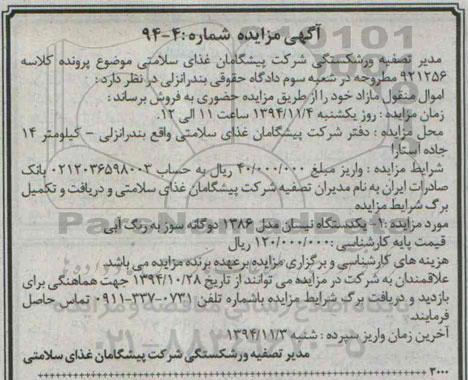 آگهی مزایده شماره :۴-۹۴
مدیر تصفیه ورشکستگی شرکت پیشگامان غذای سلامتی موضوع پرونده کلاسه
۹۲۱۲۵۶ مطروحه در شعبه سوم دادگاه حقوقی بندرانزلی در نظر دارد :
اموال منقول مازاد خود را از طریق مزایده حضوری به فروش برساند :
زمان مزایده : روز یکشنبه ۱۳۹۴/۱۱/۴ ساعت ۱۱ الی ۱۲.
محل مزایده : دفتر شرکت پیشگامان غذای سلامتی واقع بندرانزلی - کیلومتر ۱۴
جاده آستارا
شرایط مزایده : واریز مبلغ ۴۰/۰۰۰/۰۰۰ ریال به حساب ۰۲۱۲۰۳۶۵۹۸۰۰۳ بانک
صادرات ایران به نام مدیران تصفیه شرکت پیشگامان غذای سلامتی و دریافت و تکمیل
برگ شرایط مزایده
مورد مزایده :۱- یکدستگاه نیسان مدل ۱۳۸۶ دوگانه سوز به رنگ آبی
قیمت پایه کارشناسی :۱۲۰/۰۰۰/۰۰۰ ریال
هزینه های کارشناسی و برگزاری مزایده بر عهده برنده مزایده می باشد.
علاقمندان به شرکت در مزایده می توانند از تاریخ ۱۳۹۴/۱۰/۲۸ جهت هماهنگی برای
بازدید و دریافت برگ شرایط مزایده باشماره تلفن ۰۷۳۱-۳۳۷-۰۹۱۱ تماس حاصل
فرمایند.
آخرین زمان واریز سپرده : شنبه ۱۳۹۴/۱۱/۳
مدیر تصفیه ورشکستگی شرکت پیشگامان غذای سلامتی
۲۰۰۰